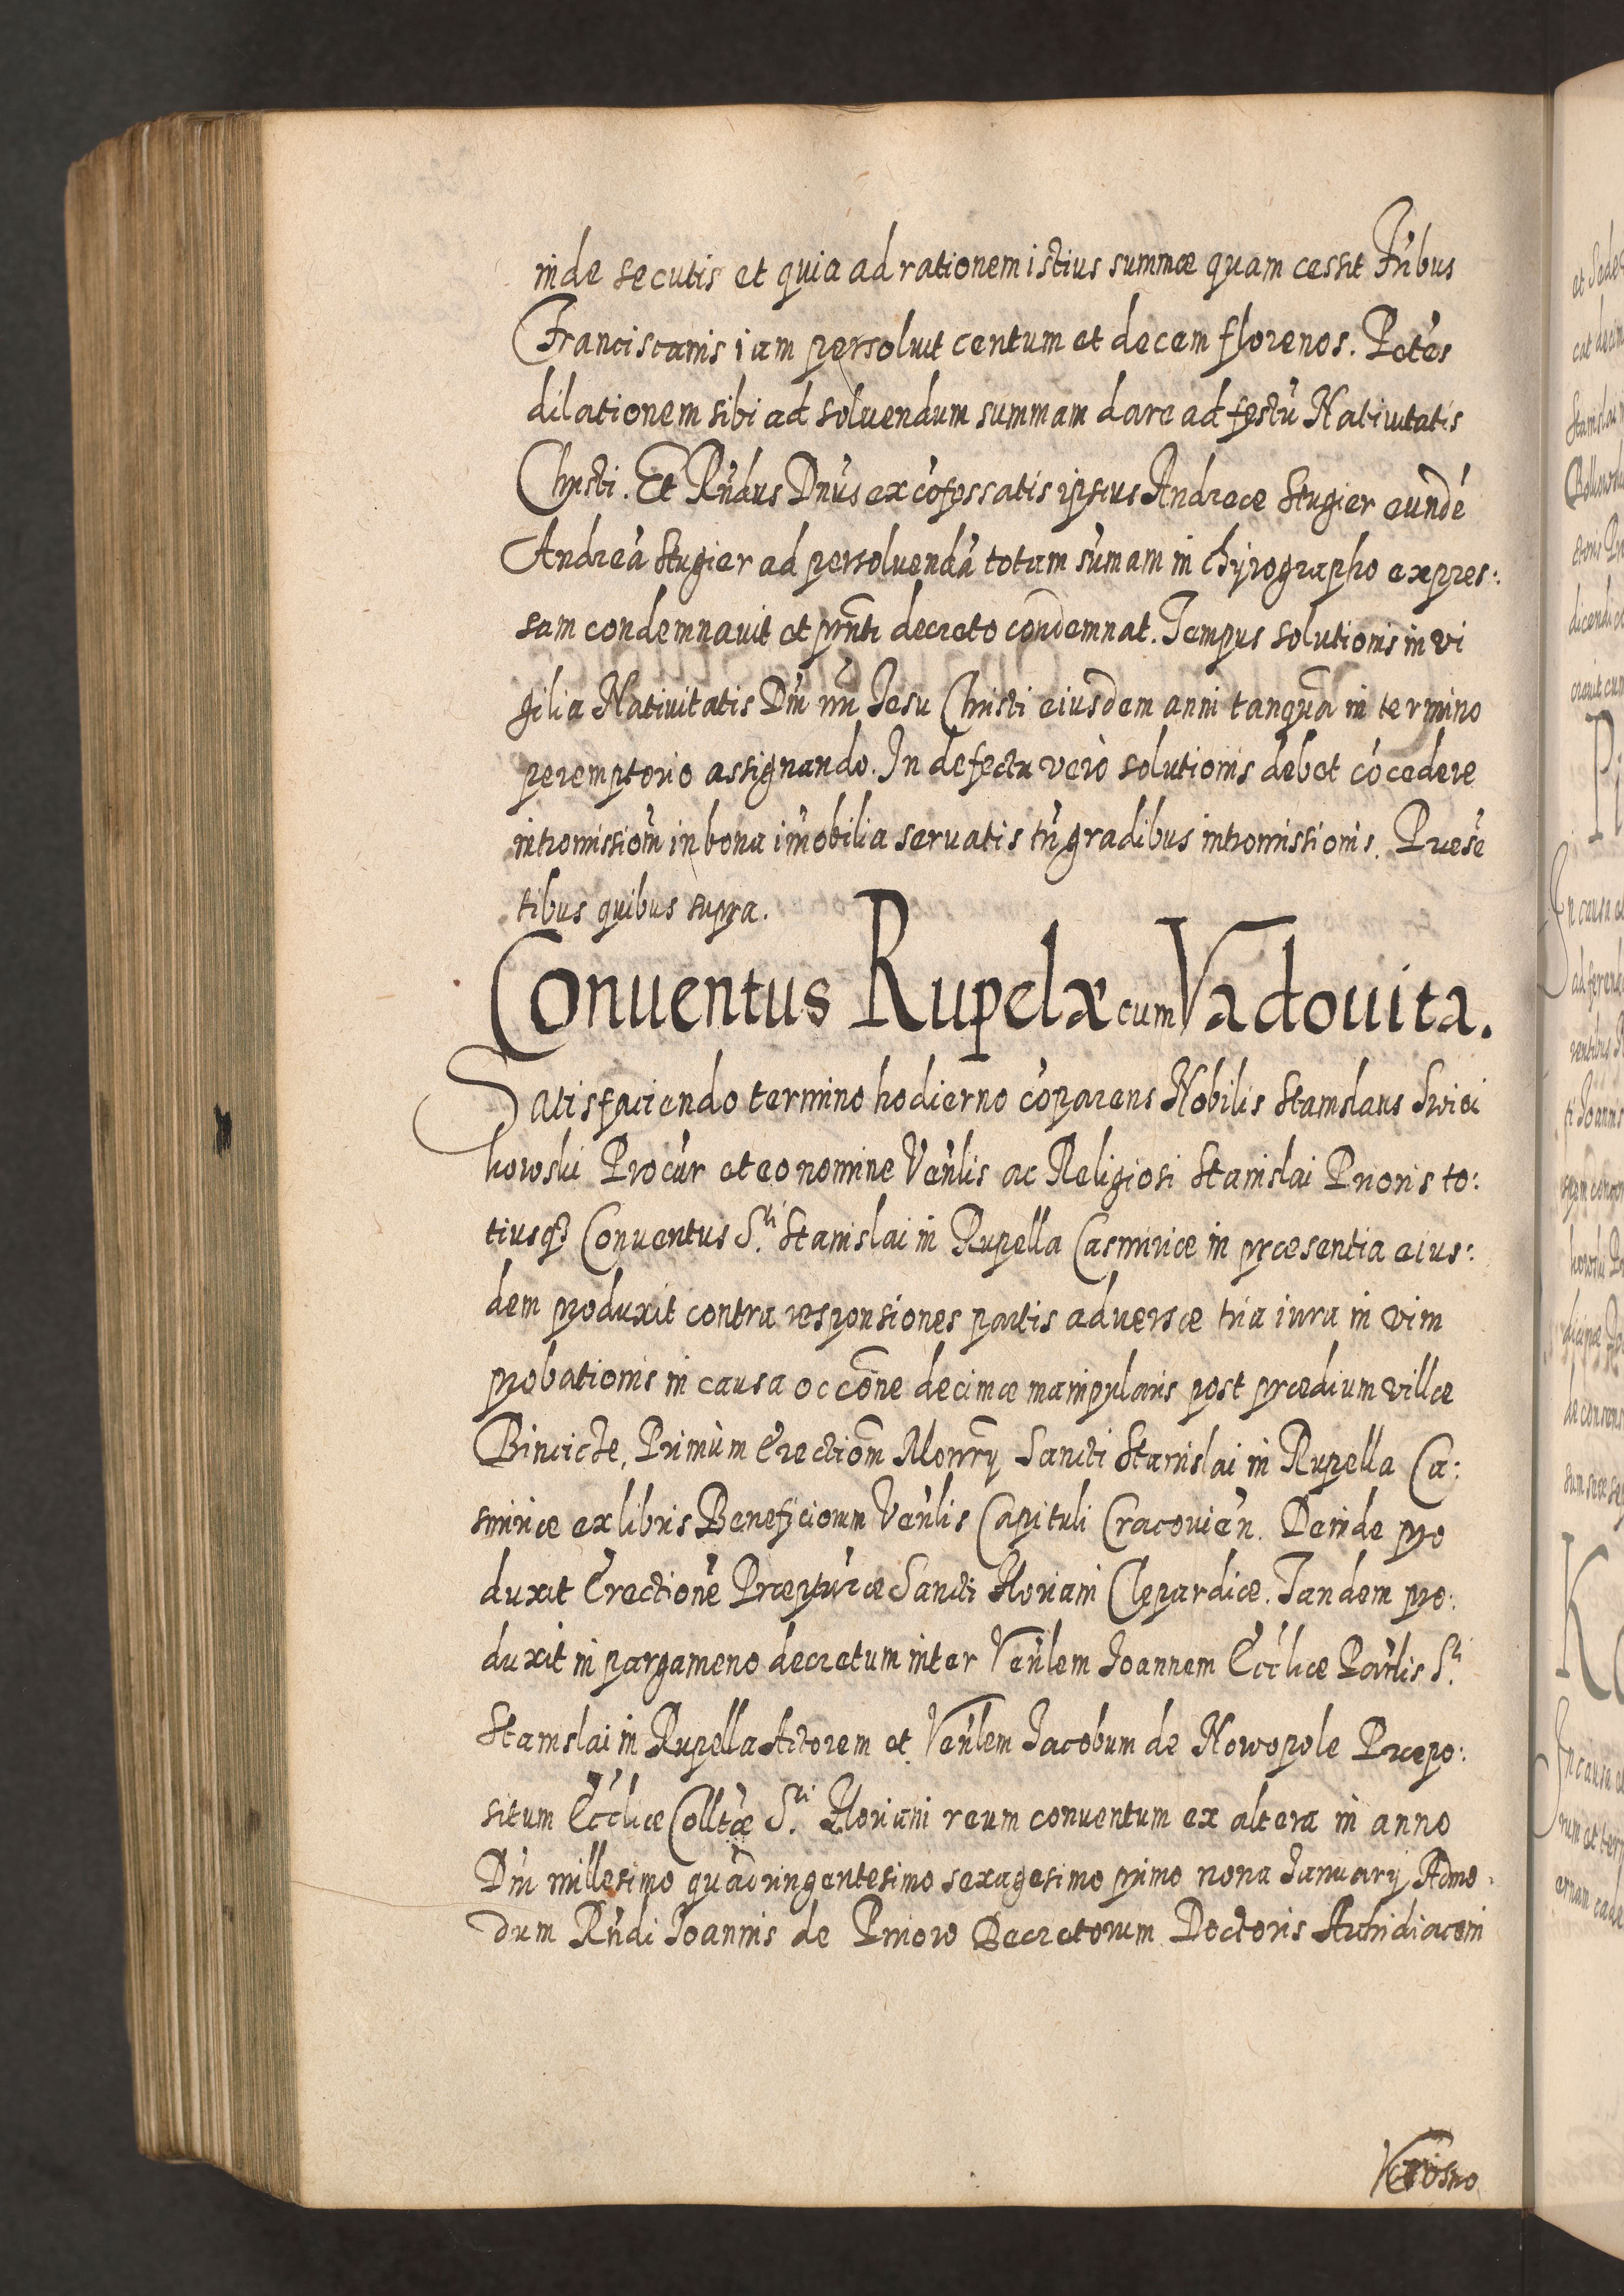 inde secutis et quia ad rationem istius summæ quam cessit Fribus
Franciscanis iam persoluit centum et decem florenos. Petēs
dilationem sibi ad soluendum summam dare ad festū Natiuitatis
Christi. Et Rndus Dnus ex cōfessatis ipsius Andreæ Stugier eundē
Andreā Stugier ad persoluendā totam sūmam in chyrographo expres:
sam condemnauit et prnti decreto condemnat. Tempus solutionis in vi
gilia Natiuitatis Dni nri Jesu Christi eiusdem anni tanquā in termino
peremptorio assignando. In defectu verò solutionis debet cōcedere
intromissiom in bona imobilia seruatis tn gradibus intromissionis. Præsē
tibus quibus supra.
Conuentus Rupelæ cum Vadouita.
Satisfaciendo termino hodierno cōparens Nobilis Stanislaus Swiei
howski Procur et eo nomine Venlis ac Religiosi Stanislai Prioris to:
tiusq3 Conuentus S.ti Stanislai in Rupella Casimiriæ in præsentia eius:
dem produxit contra responsiones partis aduersæ tria iura in vim
probationis in causa occōne decimæ manipularis post prædium villæ
Primùm Erectiom Monrÿ Sancti Stanislai in Rupella Ca:
simiriæ ex libris Beneficiorum Venlis Capituli Cracouien. Deinde pro
duxit Erectionē Præpturæ Sancti Floriani Clepardiæ. Tandem pro:
duxit in pargameno decretum inter Venlem Joannem Ecclìæ Parlis S.ti
Stanislai in Rupella Actorem et Venlem Jacobum de Nowopole Præpo:
situm Ecclìæ Colltæ S.ti Floriani reum conuentum ex altera in anno
Dni millesimo quadringentesimo sexagesimo primo nona Januarÿ Admo:
dum Rndi Joannis de Pniow Decretorum Doctoris Archidiaconi